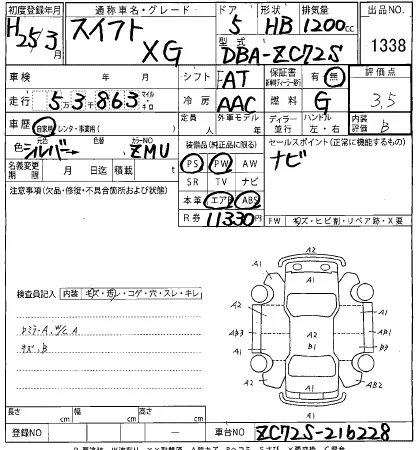 初度登録年月 通称車名・グレード ドア 形状 排気量 出品NO
H25/3 スイフト XG 5 HB 1200cc 1338
型式 DBA-ZC72S
車検 年 月 シフト AT 保証書 有・無 評価点
走行 5万3千863 マイル キロ 冷房 AAC 燃料 G 3.5
車歴 自家用・レンタ・事業用( ) 定員 人 外車モデル 年 ディーラー 並行 ハンドル 左・右 内装評価 B
色 元色 シルバー 色替 カラーNO ZMU
装備品(純正品に限る) セールスポイント(正常に機能するもの)
PS PW AW ナビ
名義変更期限 月 日迄 積載 t SR TV ナビ
注意事項(欠品・修復・不具合箇所および状態) 本革 エアB ABS
R券 11330円
FW キズ・ヒビ・リペア跡・X要
検査員記入 内装 キズ・汚レ・コゲ・穴・スレ・キレ
A2
A1 A1
A2 A2 A2
AB3 B1 A1
A1 B3
A1 AB2
A2
A1
長さ cm 幅 cm 高さ cm
登録NO ― 車台NO ZC72S-216228